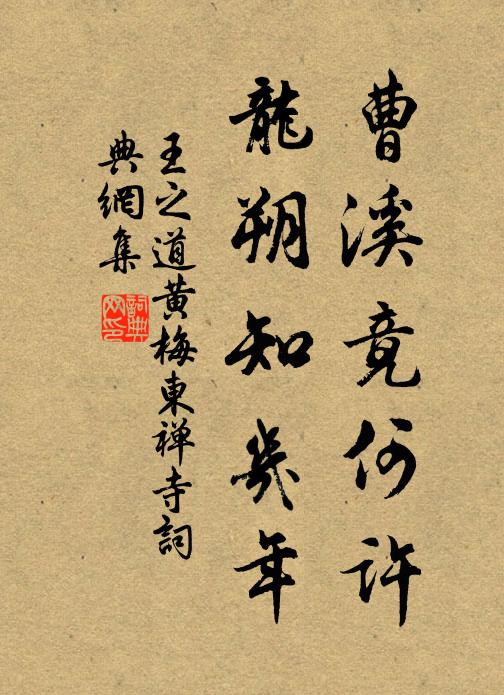 曹溪竟何許
龍朔知幾年
王之道黄梅東禅寺詞
典網集
詞典
网印